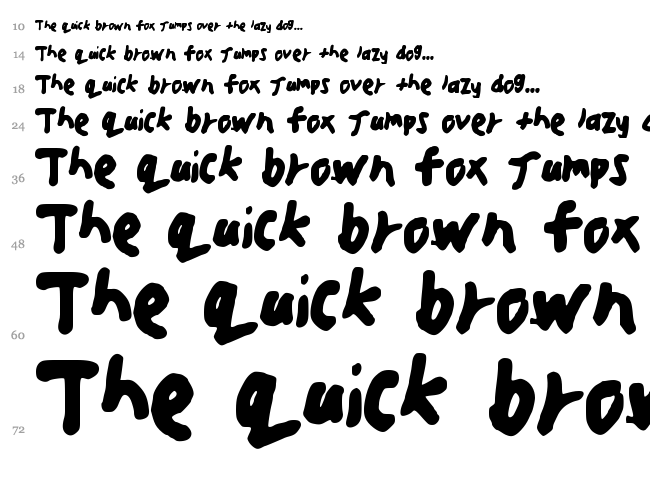 10 The quick brown fox Jumps over the lazy dog...
14 The quick brown fox Jumps over the lazy dog...
18 The quick brown fox Jumps over the lazy dog...
24 The quick brown fox Jumps over the lazy d
36 The quick brown fox Jumps
48 The quick brown fox
60 The quick brown
72 The quick brow